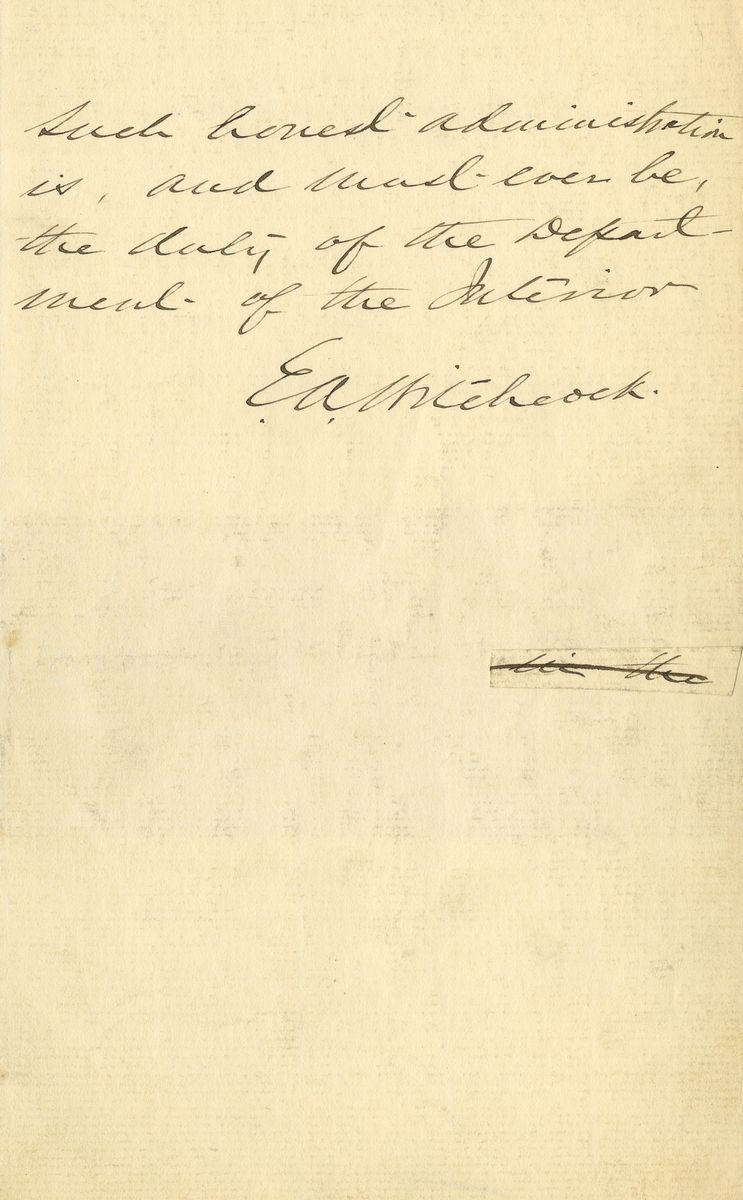 Such honest administration
is, and must ever be,
the duty of the Depart-
ment of the Interior
E. A. Hitchcock.
in the